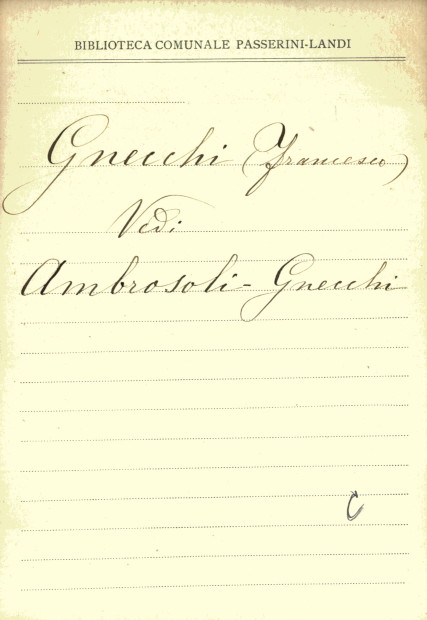 BIBLIOTECA COMUNALE PASSERINI-LANDI
Gnecchi (Francesco)
Vedi
Ambrosoli - Gnecchi
C